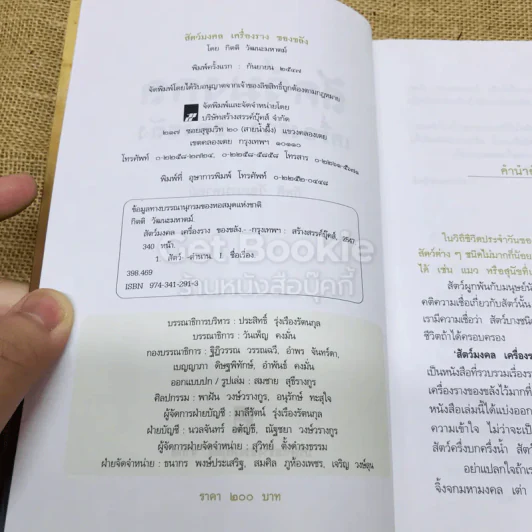 สัตว์มงคล เครื่องราง ของขลัง
โดย กิตติ วัฒนะมหาตม์
พิมพ์ครั้งแรก : กันยายน ๒๕๔๗
จัดพิมพ์โดยได้รับอนุญาตจากเจ้าของลิขสิทธิ์ถูกต้องตามกฎหมาย
จัดพิมพ์และจัดจำหน่ายโดย
บริษัทสร้างสรรค์บุ๊คส์ จำกัด
๒๑๗ ซอยสุขุมวิท ๒๐ (สายน้ำผึ้ง) แขวงคลองเตย
เขตคลองเตย กรุงเทพฯ ๑๐๑๑๐
โทรศัพท์ โทรสาร
พิมพ์ที่ อุษาการพิมพ์ โทรศัพท์
ข้อมูลทางบรรณานุกรมของหอสมุดแห่งชาติ
กิตติ วัฒนะมหาตม์
สัตว์มงคล เครื่องราง ของขลัง.--กรุงเทพฯ : สร้างสรรค์บุ๊คส์, 2547
340 หน้า.
1. สัตว์--ตำนาน. I. ชื่อเรื่อง.
398.469
ISBN 974-341-291-3
Get Bookie
ร้านหนังสือบุ๊คกี้
บรรณาธิการบริหาร : ประสิทธิ์ รุ่งเรืองรัตนกุล
บรรณาธิการ : วันเพ็ญ คงมั่น
กองบรรณาธิการ : ฐิฏิวรรณ วรรณฉวี, อำพร จันทร์ดา,
เบญญาภา ดิษฐพิทักษ์, อำพันธ์ คงมั่น
ออกแบบปก / รูปเล่ม : สมชาย สุธีรางกูร
ศิลปกรรม : พาฝัน วงษ์วรางกูร, อนุรักษ์ ทะสุใจ
ผู้จัดการฝ่ายบัญชี : มาลีรัตน์ รุ่งเรืองรัตนกุล
ฝ่ายบัญชี : นวลจันทร์ อตัญชี, ณัฐชยา วงษ์วรางกูร
ผู้จัดการฝ่ายจัดจำหน่าย : สุวิทย์ ตั้งดำรงธรรม
ฝ่ายจัดจำหน่าย : ธนากร พงษ์ประเสริฐ, สมศิล ภูท้องเพชร, เจริญ วงษ์ฮุน
ราคา ๒๐๐ บาท
คำนำ
ในวิถีชีวิตประจำวันของ
สัตว์ต่าง ๆ ชนิดไม่มากก็น้อย
ได้ เช่น แมว หรือสุนัขที่
สัตว์ผูกพันกับมนุษย์
คติความเชื่อเกี่ยวกับสัตว์นั้น
เรามีความเชื่อว่า สัตว์บางชนิด
ชีวิตถ้าได้ครอบครอง
'สัตว์มงคล เครื่องราง
เป็นหนังสือที่รวบรวมเรื่อง
เครื่องรางของขลังไว้มากที่
หนังสือเล่มนี้ได้แบ่งออก
ความเข้าใจ ไม่ว่าจะ
สัตว์ครึ่งบกครึ่งน้ำ สัตว์
อย่าแปลกใจถ้า
จิ้งจกมหามงคล เต่า